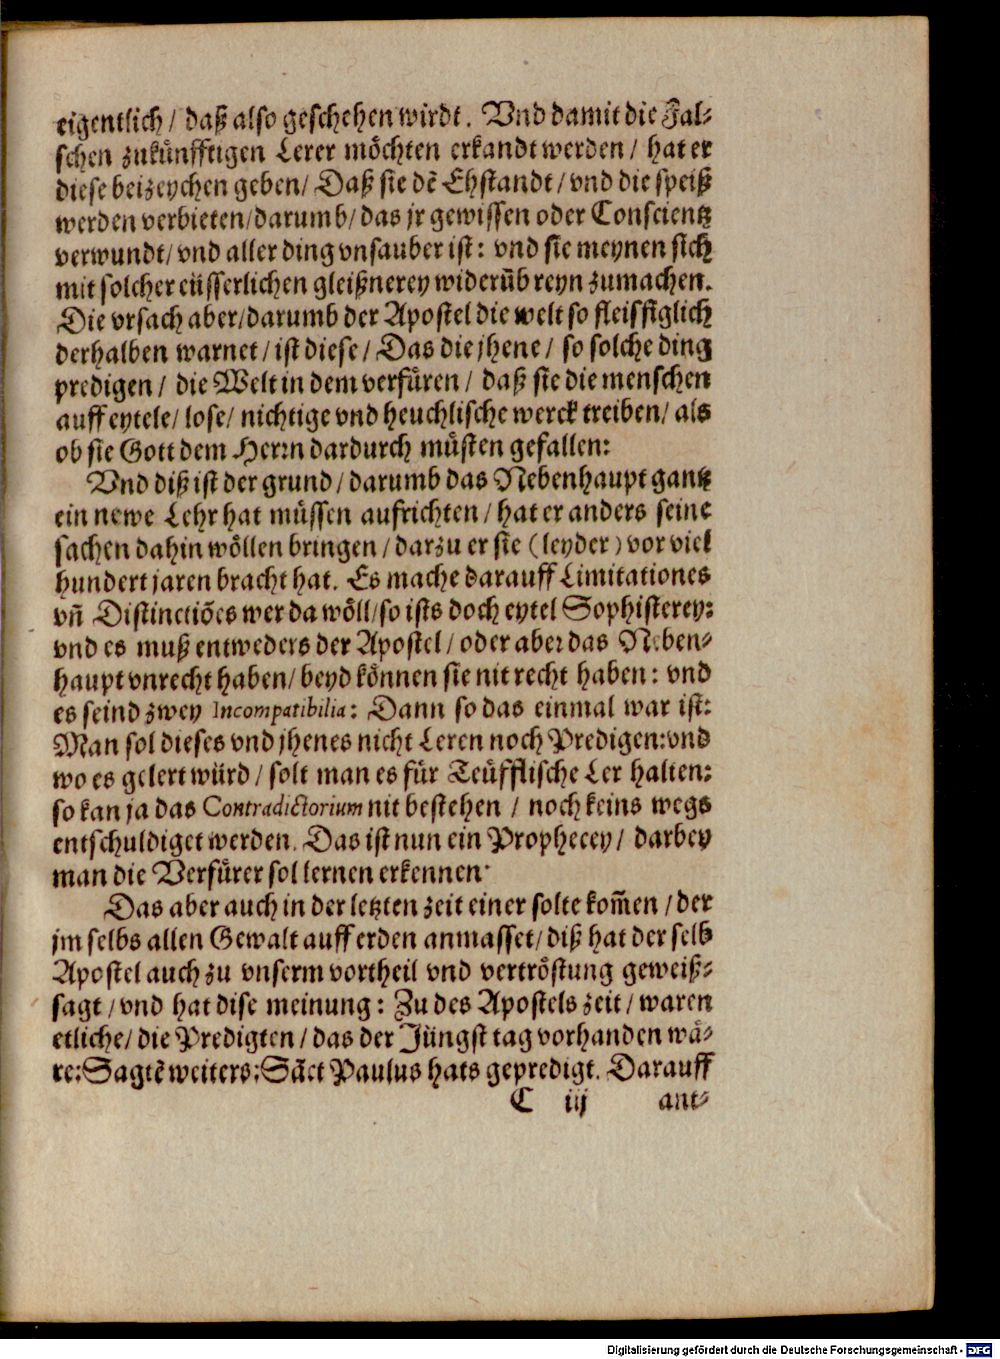 eigentlich / daß also geschehen wirdt. Vnd damit die Fal⸗
schen zukünfftigen Lerer möchten erkandt werden / hat er
diese beizeychen geben / Daß sie dē Ehstandt / vnd die speiß
werden verbieten / darumb / das jr gewissen oder Conscientz
verwundt / vnd aller ding vnsauber ist: vnd sie meynen sich
mit solcher eüsserlichen gleißnerey widerūb reyn zumachen.
Die vrsach aber / darumb der Apostel die welt so fleissiglich
derhalben warnet / ist diese / Das die jhene / so solche ding
predigen / die Welt in dem verfüren / daß sie die menschen
auff eytele / lose / nichtige vnd heuchlische werck treiben / als
ob sie Gott dem Herrn dardurch müsten gefallen:
Vnd diß ist der grund / darumb das Nebenhaupt gantz
ein newe Lehr hat müssen aufrichten / hat er anders seine
sachen dahin wöllen bringen / darzu er sie (leyder) vor viel
hundert jaren bracht hat. Es mache darauff Limitationes
vñ Distinctiões wer da wöll / so ists doch eytel Sophisterey:
vnd es muß entweders der Apostel / oder aber das Neben⸗
haupt vnrecht haben / beyd können sie nit recht haben: vnd
es seind zwey Incompatibilia: Dann so das einmal war ist:
Man sol dieses vnd jhenes nicht Leren noch Predigen: vnd
wo es gelert würd / solt man es für Teüfflische Ler halten:
so kan ja das Contradictorium nit bestehen / noch keins wegs
entschuldiget werden. Das ist nun ein Prophecey / darbey
man die Verfürer sol lernen erkennen.
Das aber auch in der letzten zeit einer solte kom̄en / der
jm selbs allen Gewalt auff erden anmasset / diß hat der selb
Apostel auch zu vnserm vortheil vnd vertröstung geweiß⸗
sagt / vnd hat dise meinung: Zu des Apostels zeit / waren
etliche / die Predigten / das der Jüngst tag vorhanden wä⸗
re: Sagtē weiters: Sāct Paulus hats gepredigt. Darauff
C iij ant⸗
Digitalisierung gefördert durch die Deutsche Forschungsgemeinschaft - DFG